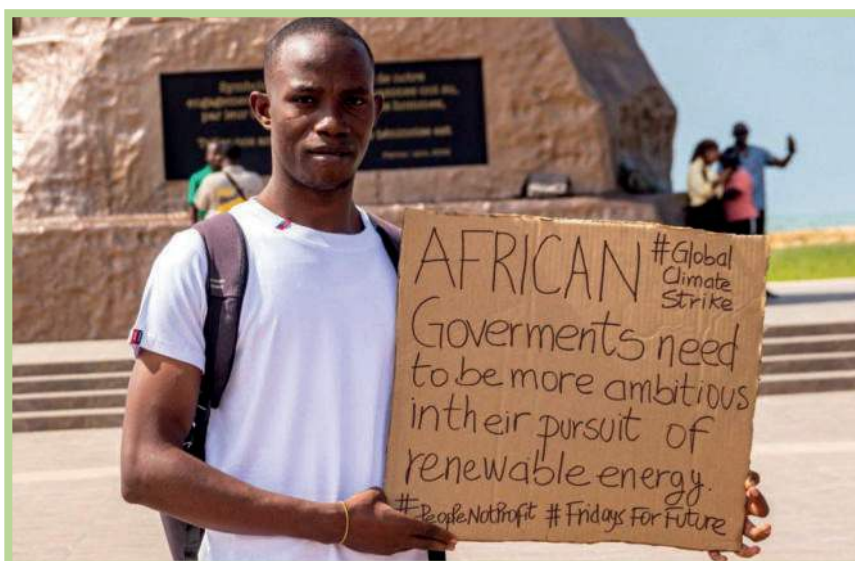 de notre
AFRICAN
#Global
Climate
Strike
Goverments need
to be more ambitious
in their pursuit of
renewable energy.
#PeopleNotProfit # Fridays For Future